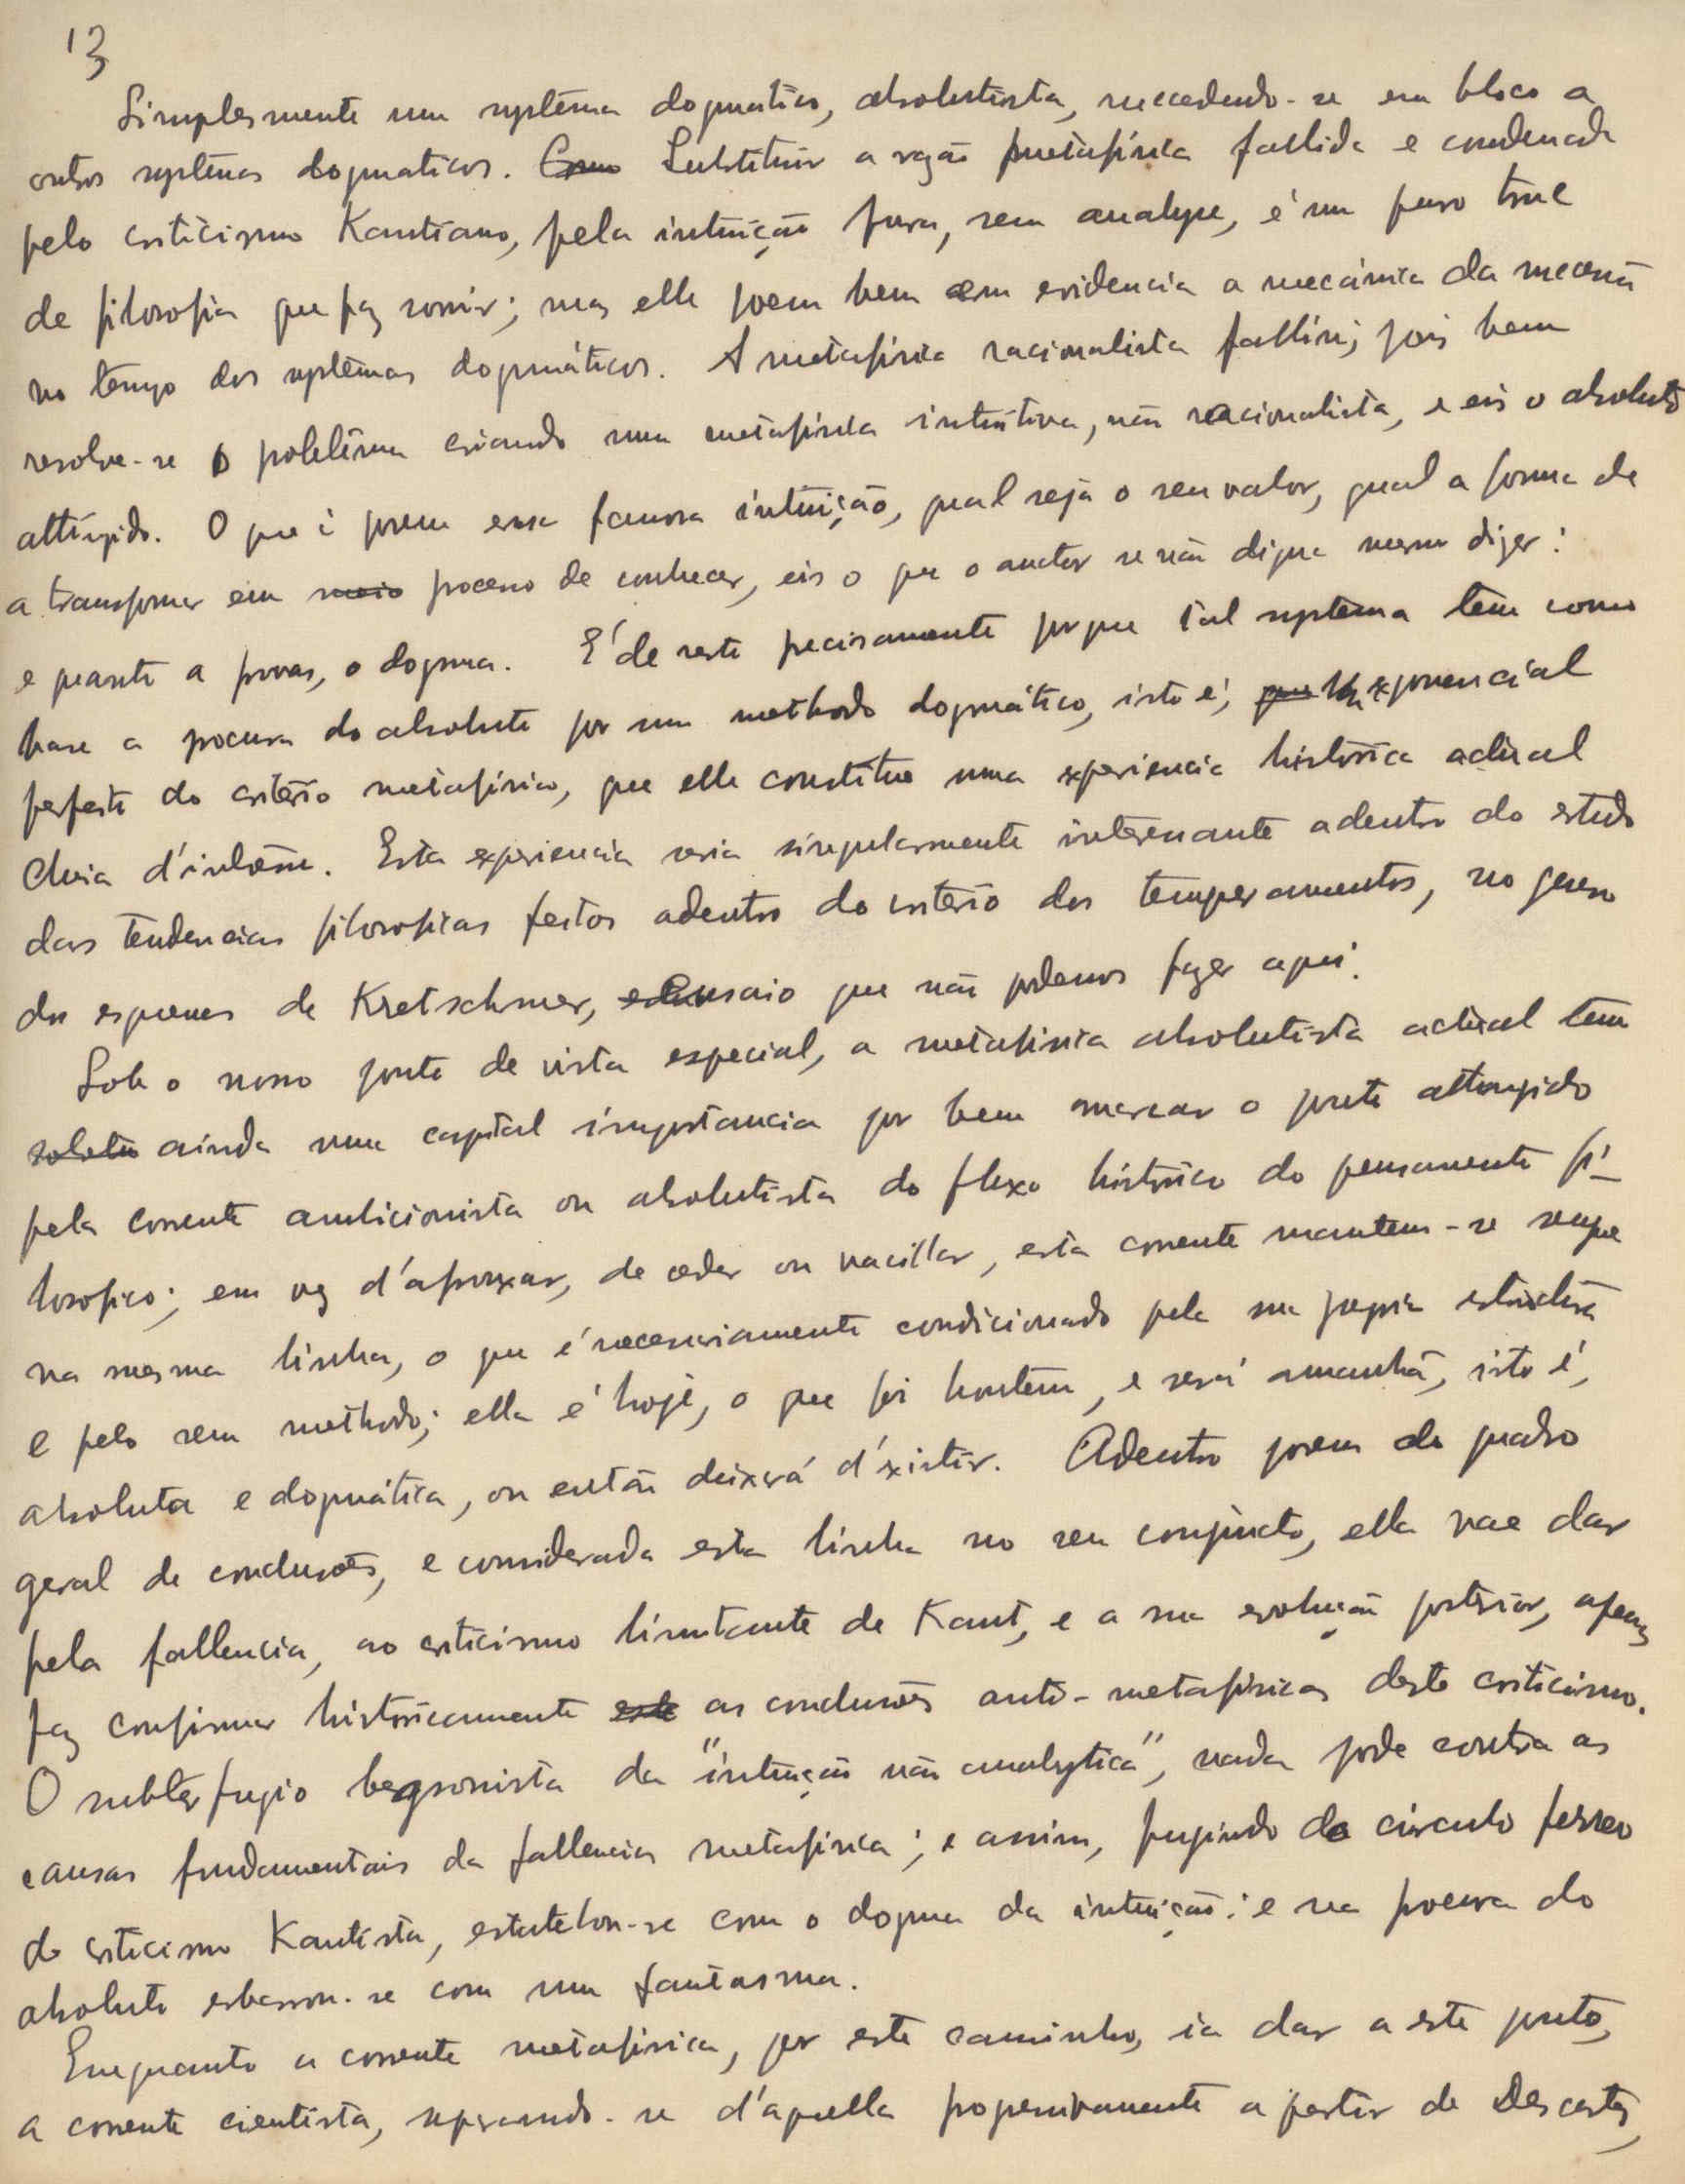 13
Simplesmente um systema dogmatico, absolutista, succedendo-se em bloco a
outros systemas dogmaticos. Substituir a razão metafísica fallida e condenada
pelo criticismo Kantiano, pela intuição pura, sem analyse, é um puro truc
de filosofia que faz sorrir; mas elle poem bem em evidencia a mecánica da
no tempo dos systemas dogmáticos. A metafísica racionalista falliu; pois bem
resolve-se o poblema criando uma metafísica intuitiva, não racionalista, e eis o absoluto
attingido. O que é porem essa famosa intuição, qual seja o seu valor, qual a forma de
a transformar em processo de conhecer, eis o que o auctor se não digna mesmo dizer:
e quanto a provas, o dogma. É de resto precisamente porque tal systema tem como
base a procura do absoluto por um methodo dogmático, isto é, exponencial
perfeito do critério metafísico, que elle constitue uma experiencia histórica actual
cheia d'interesse. Esta experiencia seria singularmente interessante adentro do estudo
das tendencias filosoficas feitos adentro do criterio dos temperamentos, no genero
dos esquemas de Kretschmer, ensaio que não podemos fazer aqui.
Sob o nosso ponto de vista especial, a metafisica absolutista actual tem
ainda uma capital importancia por bem marcar o ponto attingido
pela corrente ambicionista ou absolutista do flexo histórico do pensamento fi-
losofico; em vez d'afrouxar, de ceder ou vacillar, esta corrente mantem-se sempre
na mesma linha, o que é necessariamente condicionado pela sua propria estructura
e pelo seu methodo; ella é hoje, o que foi hontem, e será amanhã, isto é,
absoluta e dogmática, ou então deixará d'existir. Adentro porem do quadro
geral de conclusões, e considerada esta linha no seu conjuncto, ella vae dar
pela fallencia, ao criticismo limitante de Kant, e a sua evolução posterior, apenas
faz confirmar históricamente as conclusões anti-metafísicas deste criticismo.
O subterfugio bergsonista da "intuição não analytica", nada pode contra as
causas fundamentais da fallencia metafísica; e assim, fugindo do circulo ferreo
do criticismo Kantista, estatelou-se com o dogma da intuição: e na procura do
absoluto esbarrou-se com um fantasma.
Emquanto a corrente metafísica, por este caminho, ia dar a este ponto,
a corrente cientista, separando-se d'aquella progressivamente a partir de Descartes,